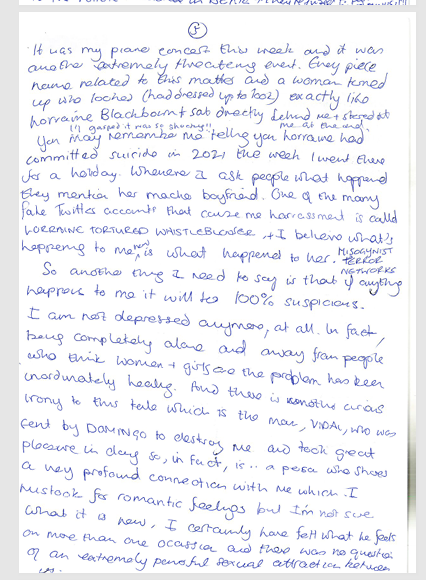 5
It was my piano concert this week and it was
another extremely threatening event. Every piece
name related to this matter and a woman turned
up who looked (had dressed up to look) exactly like
Lorraine Blackbourn + sat directly behind me + stared at
me at the end.
I gasped it was so shocking!!
You may remember me telling you Lorraine had
committed suicide in 2021 the week I went there
for a holiday. Whenever I ask people what happened
they mention her macho boyfriend. One of the many
fake Twitter accounts that cause me harassment is called
TORTURED WHISTLEBLOWER, + I believe what's
happening to me now is what happened to her.
MISOGYNIST
TERROR
NETWORKS
So another thing I need to say is that if anything
happens to me it will be 100% suspicious.
I am not depressed anymore, at all. In fact,
being completely alone and away from people
who think women + girls are the problem has been
inordinately healing. And there is another curious
irony to this tale which is the man, VIDAL, who was
sent by DOMINGO to destroy me and took great
pleasure in doing so, in fact, is .. a person who shares
a very profound connection with me which I
mistook for romantic feelings but I'm not sure
what it is now, I certainly have felt what he feels
on more than one ocassion and there was no question
of an extremely powerful sexual attraction between